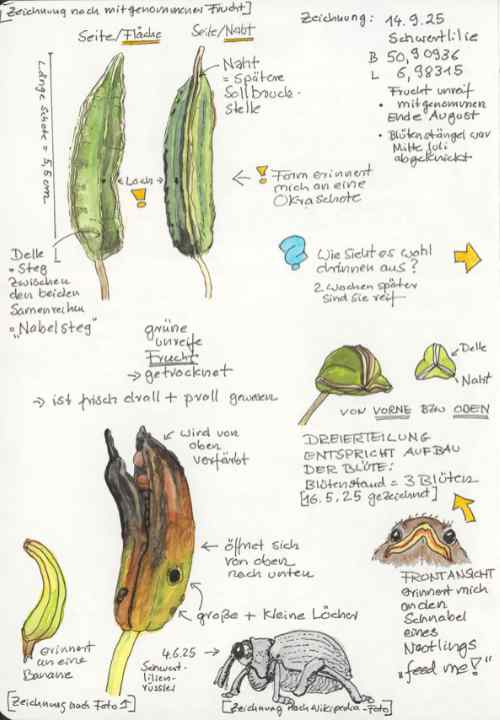 [Zeichnung nach mitgenommener Frucht]
Seite/Fläche
Seite/Naht
Länge Schote = 5,6cm
Naht
= Spätere
Sollbruch-
stelle
Zeichnung: 14.9.25
Schwertlilie
B 50,90936
L 6,98315
Frucht unreif
• mitgenommen
Ende August
• Blütenstängel war
Mitte Juli
abgeknickt
←Loch→
!
← ! Form erinnert
mich an eine
Okraschote
? Wie sieht es wohl
drinnen aus?
2 Wochen später
sind sie reif
Delle
= Steg
zwischen
den beiden
Samenreihen
"Nabelsteg"
grüne
unreife
Frucht
→ getrocknet
→ ist frisch drall + prall gewesen
Delle
Naht
VON VORNE BZW OBEN
DREIERTEILUNG
ENTSPRICHT AUFBAU
DER BLÜTE:
Blütenstand = 3 Blüten
[16.5.25 gezeichnet]
wird von
oben
verfärbt
← öffnet sich
von oben
nach unten
große + kleine Löcher
erinnert
an eine
Banane
[Zeichnung nach Foto ↑]
4.6.25 →
Schwert-
lilien-
rüssler
[Zeichnung nach Wikipedia-Foto]
FRONTANSICHT
erinnert mich
an den
Schnabel
eines
Nestlings
"feed me!"